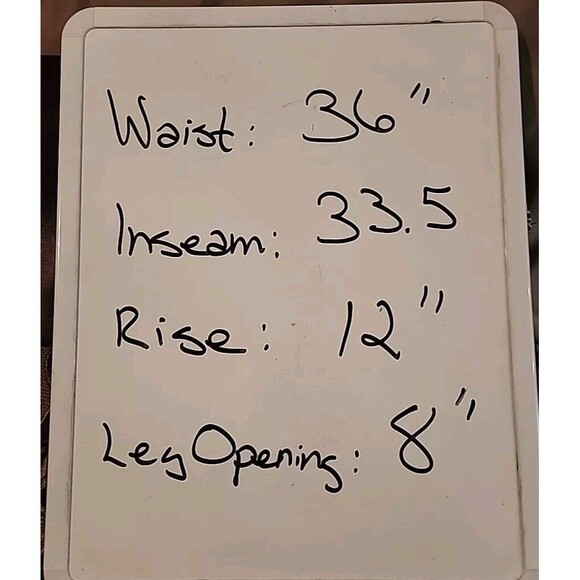 Waist: 36"
Inseam: 33.5
Rise: 12"
Leg Opening: 8"